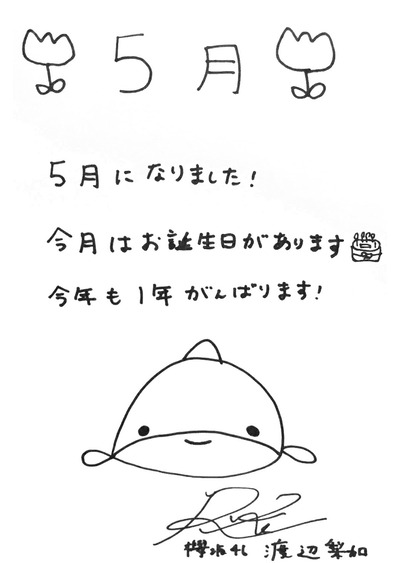 5月
5月になりました!
今月はお誕生日があります
今年も1年がんばります!
欅坂46 渡辺梨加